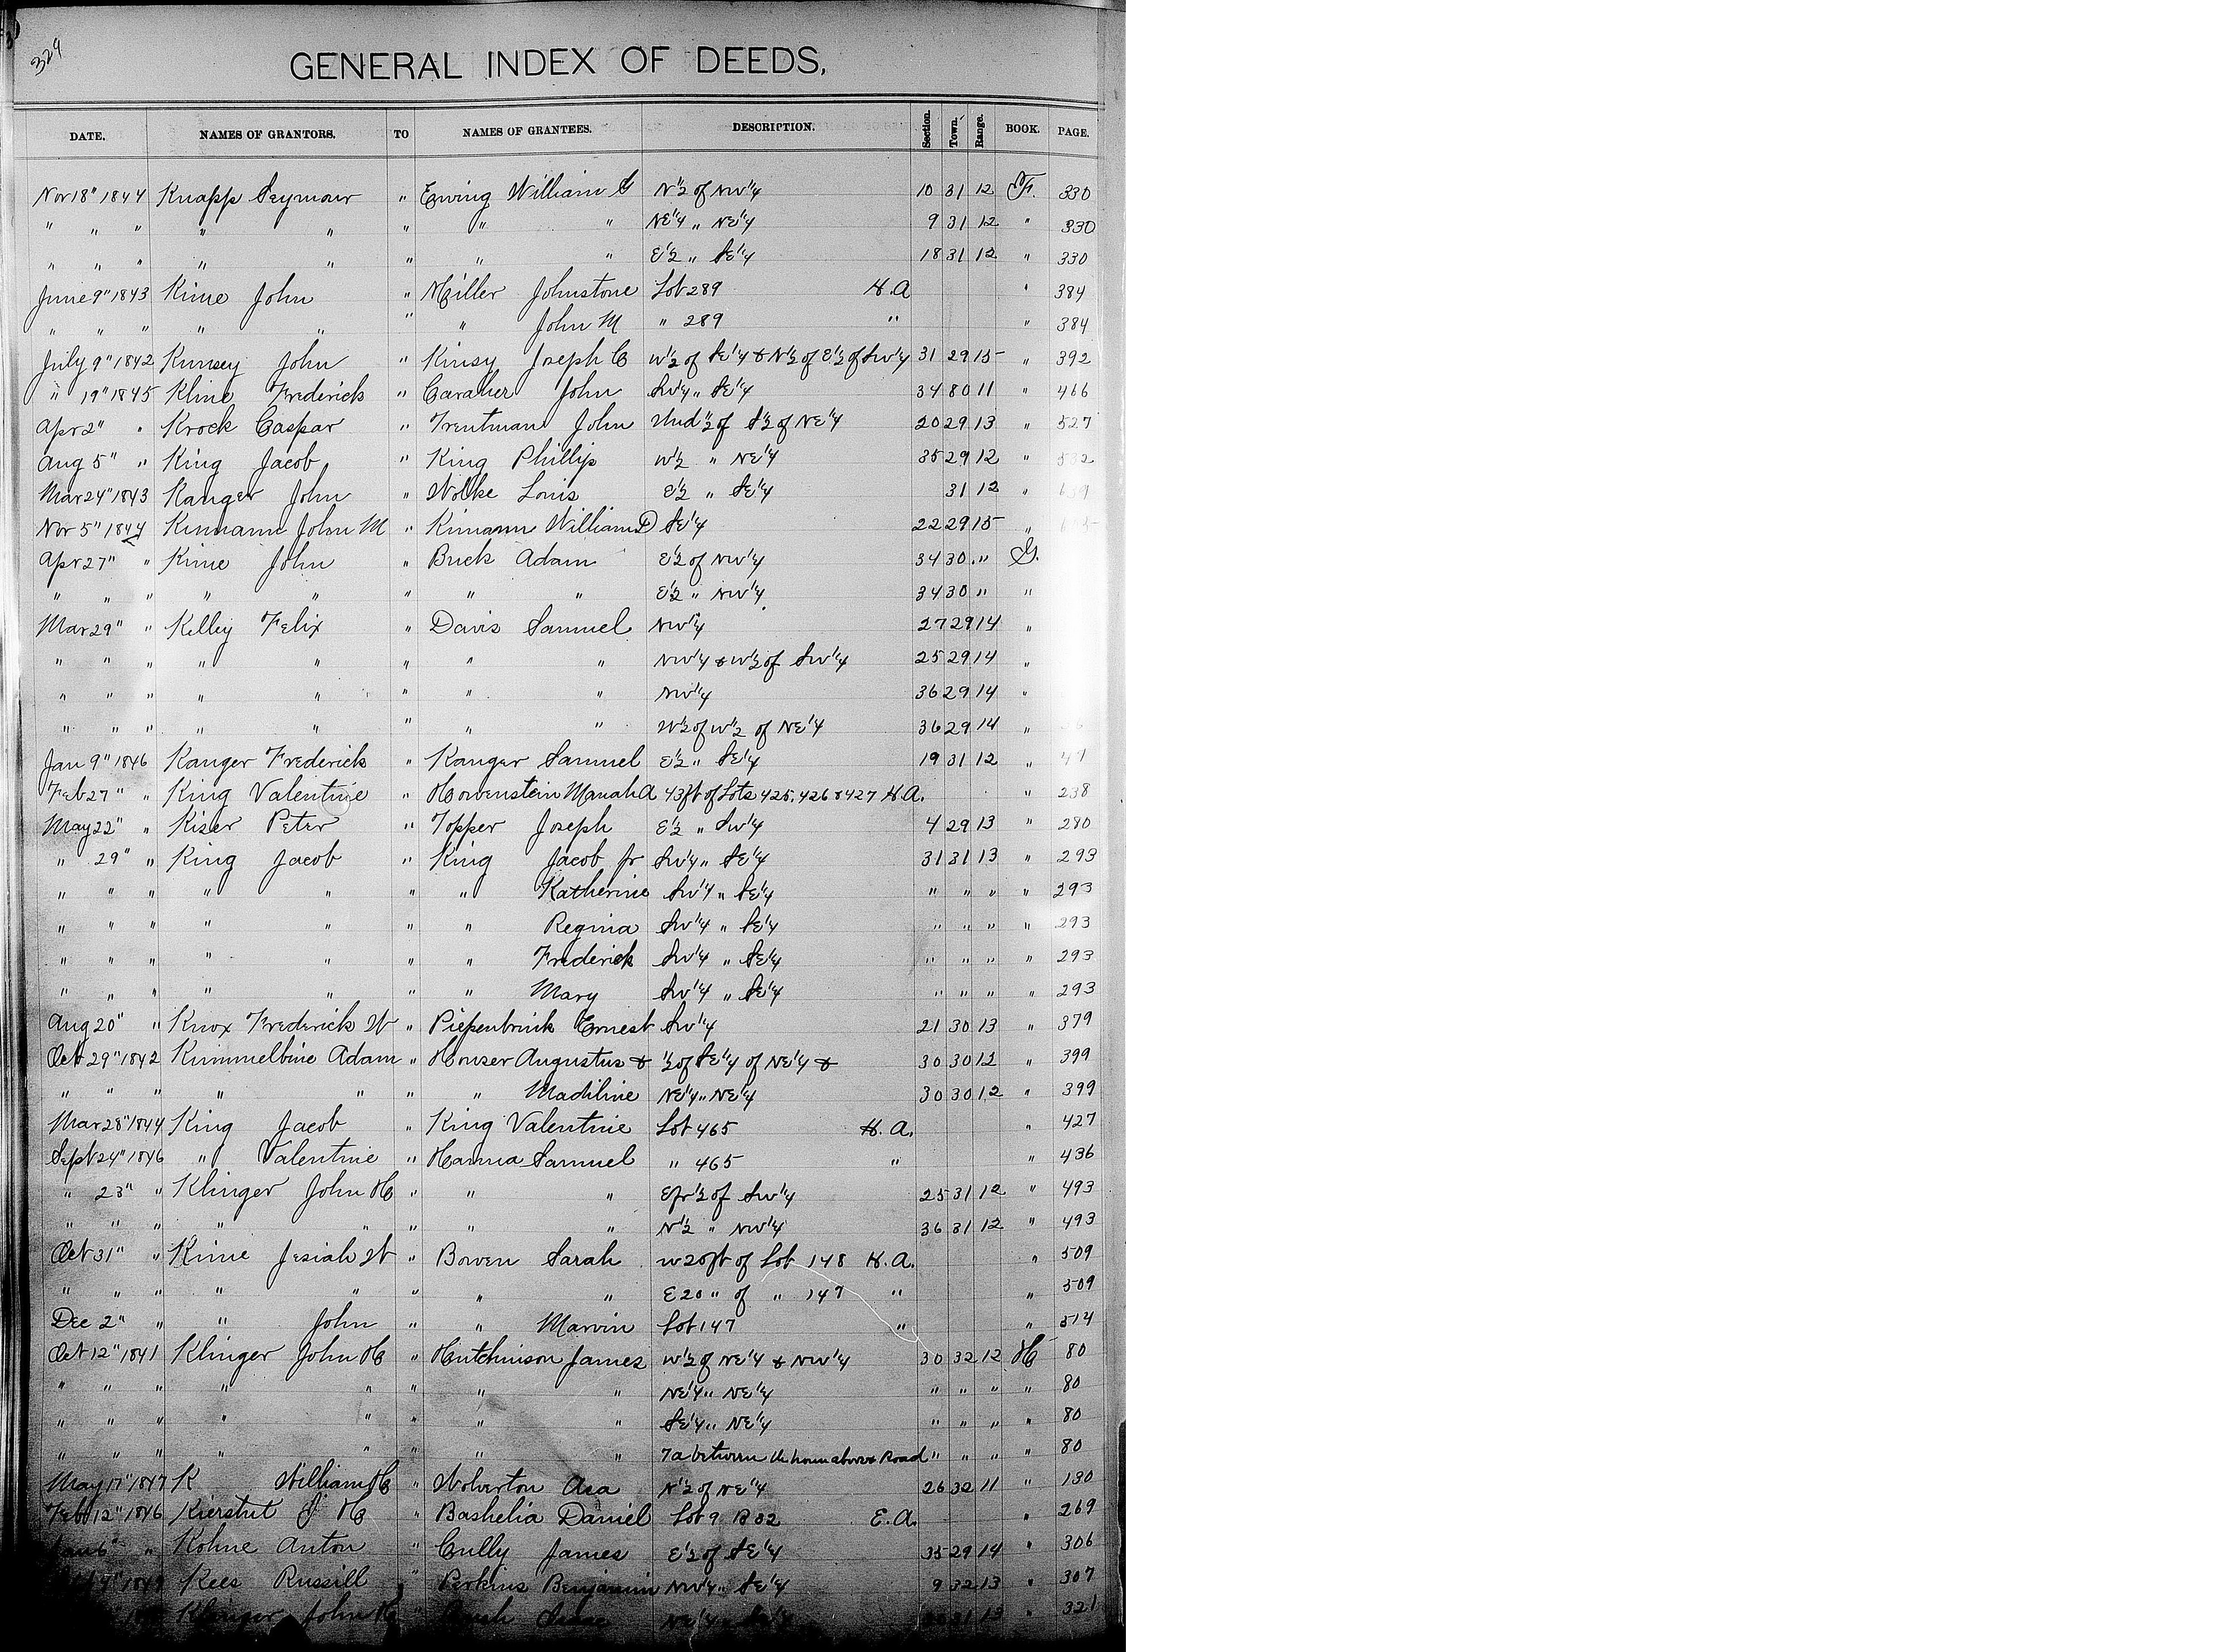 324
GENERAL INDEX OF DEEDS,
DATE. NAMES OF GRANTORS. TO NAMES OF GRANTEES. DESCRIPTION. Section. Town. Range. BOOK. PAGE.
Nov 18" 1844 Knapp Seymour " Ewing William G N 1/2 of NW 1/4 10 31 12 F. 330
" " " " " " " " NE 1/4 " NE 1/4 9 31 12 " 330
" " " " " " " " E 1/2 " SE 1/4 18 31 12 " 330
June 9" 1843 Kime John " Miller Johnstone Lot 289 H.A " 384
" " " " " " " John M " 289 " " 384
July 9" 1842 Kinsey John " Kinsy Joseph C W 1/2 of SE 1/4 & N 1/2 of E 1/2 of SW 1/4 31 29 15 " 392
" 19" 1845 Kline Frederick " Caraher John SW 1/4 " SE 1/4 34 30 11 " 466
Apr 2" " Krock Caspar " Trentman John Und 1/2 of S 1/2 of NE 1/4 20 29 13 " 527
Aug 5" " King Jacob " King Phillip W 1/2 " NE 1/4 35 29 12 " 532
Mar 24" 1843 Kanger John " Wolke Louis E 1/2 " SE 1/4 31 12 "
Nov 5" 1844 Kinmann John M " Kimann William D SE 1/4 22 29 15 "
Apr 27" " Kime John " Buck Adam E 1/2 of NW 1/4 34 30 " G.
" " " " " " " " E 1/2 " NW 1/4 34 30 " "
Mar 29" " Kelley Felix " Davis Samuel NW 1/4 27 29 14 "
" " " " " " " " NW 1/4 & W 1/2 of SW 1/4 25 29 14 "
" " " " " " " " NW 1/4 36 29 14 "
" " " " " " " " W 1/2 of W 1/2 of NE 1/4 36 29 14 "
Jan 9" 1846 Kanger Frederick " Kanger Samuel E 1/2 " SE 1/4 19 31 12 "
Feb 27" " King Valentine " Howenstein Manah A 43 ft of Lots 425, 426 & 427 H.A. " 238
May 22" " Kiser Peter " Topper Joseph E 1/2 " SW 1/4 4 29 13 " 280
" 29" " King Jacob " King Jacob Jr SW 1/4 " SE 1/4 31 31 13 " 293
" " " " " " " Katherine SW 1/4 " SE 1/4 " " " " 293
" " " " " " " Regina SW 1/4 " SE 1/4 " " " " 293
" " " " " " " Frederick SW 1/4 " SE 1/4 " " " " 293
" " " " " " " Mary SW 1/4 " SE 1/4 " " " " 293
Aug 20" " Knox Frederick W " Piepenbrink Ernest SW 1/4 21 30 13 " 379
Oct 29" 1842 Kimmelbine Adam " Houser Augustus & 1/2 of SE 1/4 of NE 1/4 & 30 30 12 " 399
" " " " " " " Madiline NE 1/4 " NE 1/4 30 30 12 " 399
Mar 28" 1844 King Jacob " King Valentine Lot 465 H.A. " 427
Sept 24" 1846 " Valentine " Hanna Samuel " 465 " " 436
" 23" " Klinger John H " " " E fr 1/2 of SW 1/4 25 31 12 " 493
" " " " " " " " N 1/2 " NW 1/4 36 31 12 " 493
Oct 31" " Kime Jesiah W " Bowen Sarah W 20 ft of Lot 148 H.A. " 509
" " " " " " " " E 20 " of " 147 " " 509
Dec 2" " " John " " Marvin Lot 147 " " 514
Oct 12" 1841 Klinger John H " Hutchinson James W 1/2 of NE 1/4 & NW 1/4 30 32 12 H 80
" " " " " " " " NE 1/4 " NE 1/4 " " " " 80
" " " " " " " " SE 1/4 " NE 1/4 " " " " 80
" " " " " " " " 7 a between the above & Road " " " " 80
May 17" 1847 K William H " Wolverton Asa N 1/2 of NE 1/4 26 32 11 " 130
Feb 12" 1846 Kierstut J H " Bashelia Daniel Lot 9 B 32 E.A. " 269
Jan 6" " Kohne Anton " Cully James E 1/2 of SE 1/4 35 29 14 " 306
Kees Russill " Perkins Benjamin NW 1/4 " SE 1/4 9 32 13 " 307
Klinger John H " NE 1/4 " SW 1/4 31 13 " 321